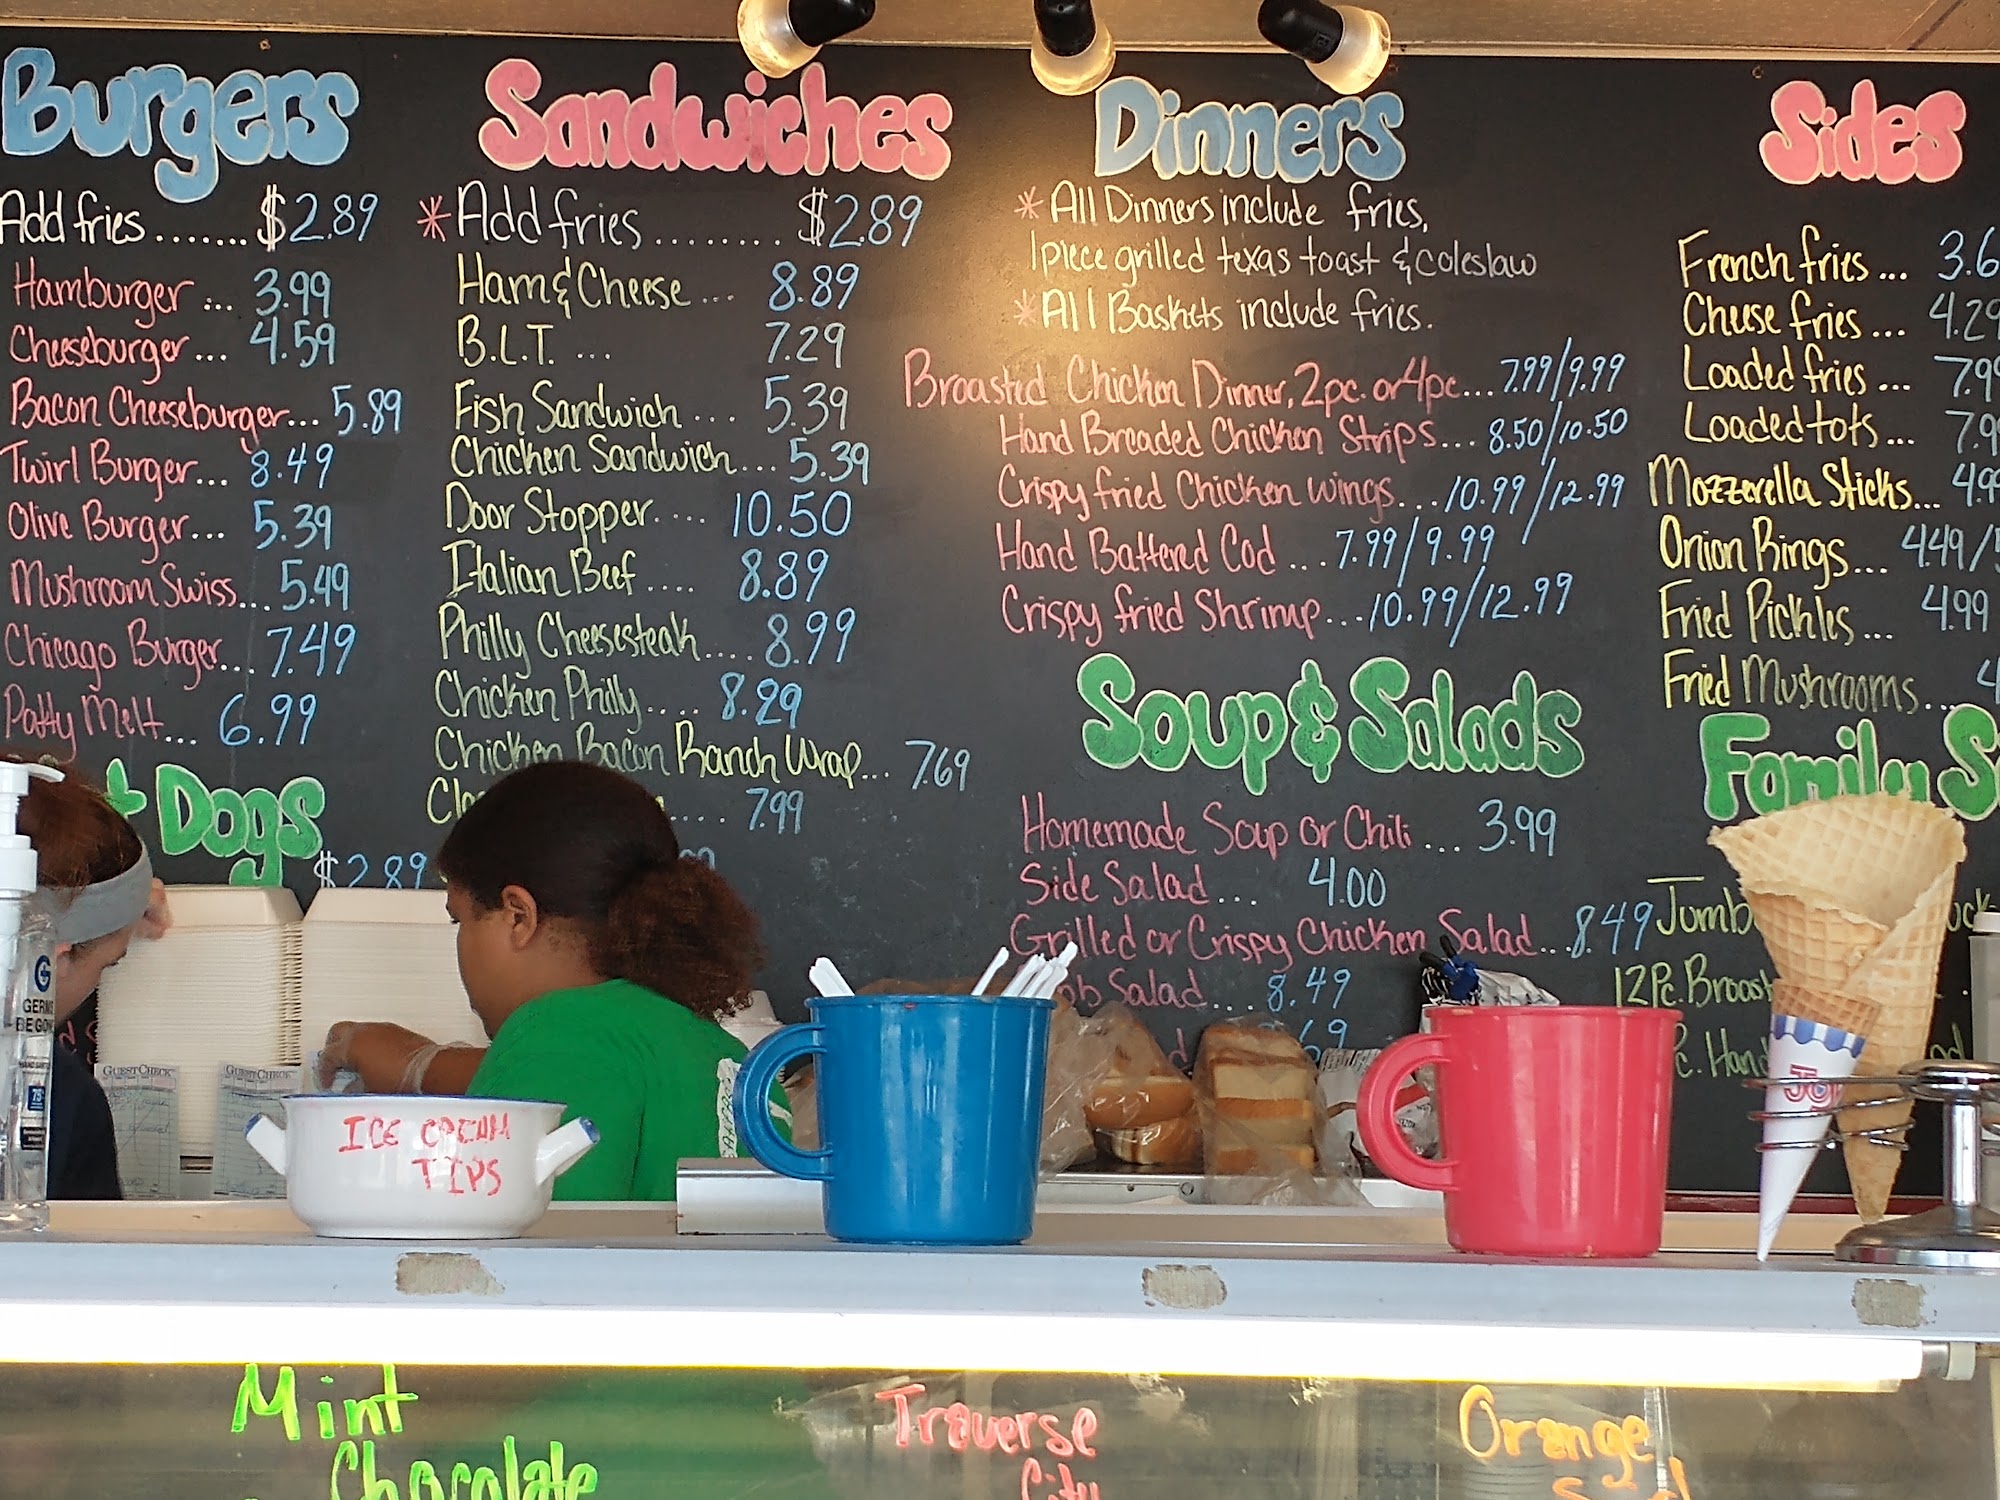 Burgers
Add fries ....... $2.89
Hamburger ... 3.99
Cheeseburger ... 4.59
Bacon Cheeseburger... 5.89
Twirl Burger... 8.49
Olive Burger... 5.39
Mushroom Swiss... 5.49
Chicago Burger... 7.49
Patty Melt... 6.99
Dogs
$2.89
Sandwiches
*Add fries ........ $2.89
Ham & Cheese ... 8.89
B.L.T. ... 7.29
Fish Sandwich .... 5.39
Chicken Sandwich... 5.39
Door Stopper.... 10.50
Italian Beef .... 8.89
Philly Cheesesteak.... 8.99
Chicken Philly.... 8.29
Chicken Bacon Ranch Wrap... 7.69
.... 7.99
Dinners
*All Dinners include fries,
1 piece grilled texas toast & coleslaw
*All Baskets include fries.
Broasted Chicken Dinner, 2pc. or 4pc... 7.99/9.99
Hand Breaded Chicken Strips... 8.50/10.50
Crispy fried Chicken wings... 10.99/12.99
Hand Battered Cod ... 7.99/9.99
Crispy fried Shrimp... 10.99/12.99
Soup & Salads
Homemade Soup or Chili ... 3.99
Side Salad ... 4.00
Grilled or Crispy Chicken Salad... 8.49
Salad... 8.49
Sides
French fries ... 3.6
Cheese fries ... 4.29
Loaded fries ... 7.99
Loaded tots ... 7.9
Mozzerella Sticks... 4.9
Onion Rings... 4.49/
Fried Pickles ... 4.99
Fried Mushrooms... 4
Family S
Jumb
12 Pc. Broast
Pc. Hand
GERMS
BE GON
GUEST CHECK
GUEST CHECK
ICE CREAM
TIPS
JOY
Mint
Chocolate
Traverse
City
Orange